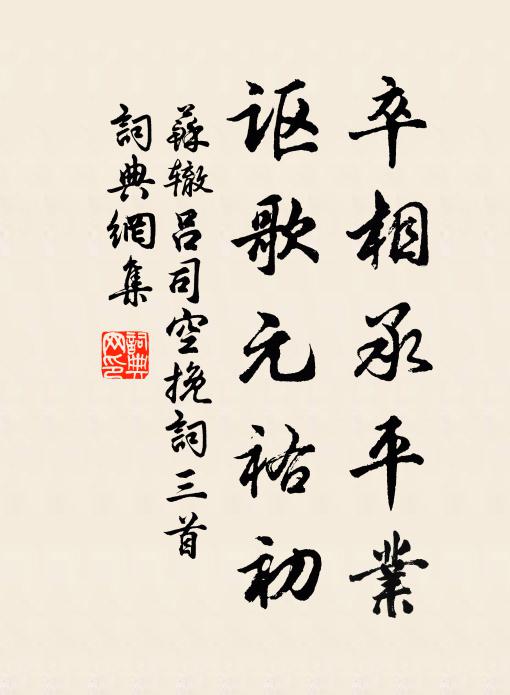 卒相承平業
讴歌元祐初
蘇辙吕司空挽詞三首
詞典網集
詞典网印